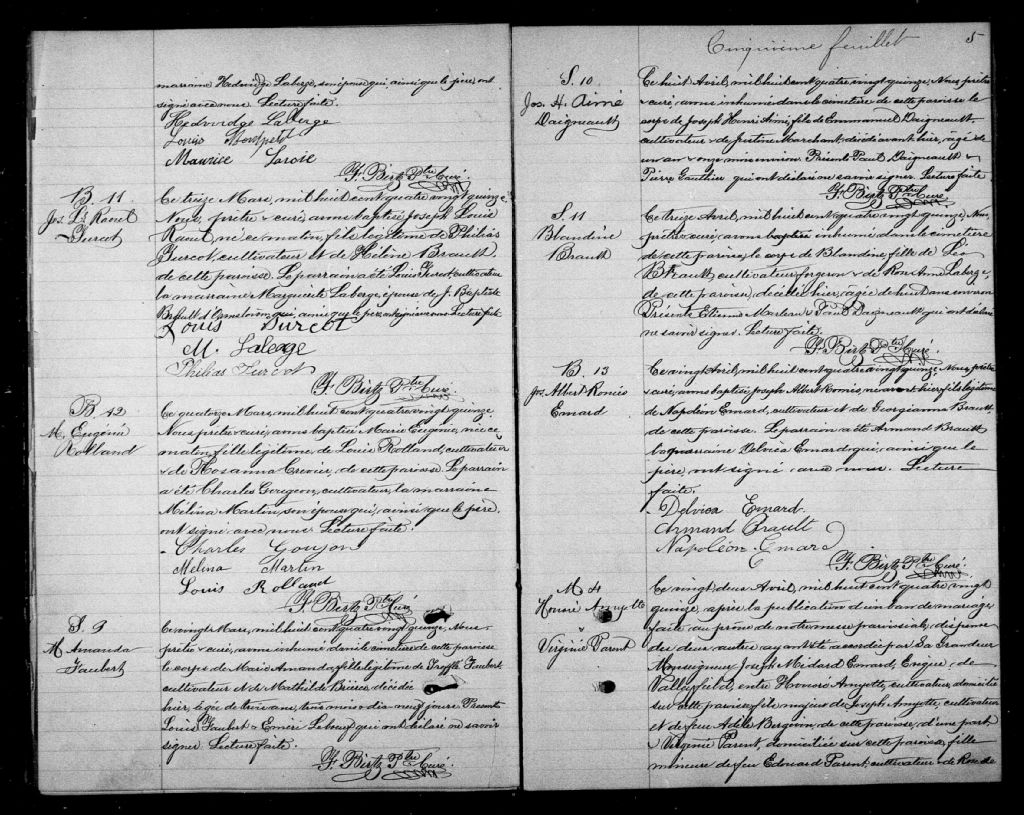 marraine Hedwidge Laberge, son épouse qui, ainsi que le père, ont
signé avec nous. Lecture faite.
Hedwidge Laberge
Louis
Maurice
F. Birtz Ptre Curé
B. 11
Jos. Ls Raoul
Turcot
Ce treize Mars, mil huit cent quatre vingt quinze,
Nous, prêtre & curé, avons baptisé Joseph Louis
Raoul, né ce matin, fils légitime de Philias
Turcot, cultivateur et de Hélène Brault
de cette paroisse. Le parrain a été Louis Turcot, cultivateur
la marraine Marguerite Laberge, épouse de J. Baptiste
Brault qui, ainsi que le père, ont signé avec nous. Lecture faite
Louis Turcot
M. Laberge
Philias Turcot
F. Birtz Ptre Curé
B. 12
M. Eugénie
Rolland
Ce quatorze Mars, mil huit cent quatre vingt quinze,
Nous, prêtre & curé, avons baptisé Marie Eugénie, née ce
matin, fille légitime, de Louis Rolland, cultivateur
& de Rosanna Crevier, de cette paroisse. Le parrain
a été Charles Gougeon, cultivateur, la marraine
Mélina Martin, son épouse qui, ainsi que le père,
ont signé avec nous. Lecture faite.
Charles Goujon
Melina Martin
Louis Rolland
F. Birtz Ptre Curé
S. 9
M. Amanda
Faubert
Ce vingt Mars, mil huit cent quatre vingt quinze, Nous,
prêtre & curé, avons inhumé dans le cimetière de cette paroisse
le corps de Marie Amanda, fille légitime de Treffle Faubert
cultivateur et de Mathilde décédée
hier, agée de trois ans, trois mois & dix neuf jours. Presents
Louis Faubert & Lebeuf qui ont déclaré ne savoir
signer. Lecture faite.
F. Birtz Ptre Curé
Cinquième feuillet
5
S. 10
Jos. H. Aimé
Daigneault
Ce huit Avril, mil huit cent quatre vingt quinze, Nous, prêtre
& curé, avons inhumé dans le cimetière de cette paroisse le
corps de Joseph Henri Aimé, fils de Emmanuel Daigneault,
cultivateur & de Justine Marchand, décédé avant hier, agé de
un an & onze mois environ. Présents Paul Daigneault &
Pierre Gauthier qui ont déclaré ne savoir signer. Lecture faite
F. Birtz Ptre Curé
S. 11
Blandine
Brault
Ce treize Avril, mil huit cent quatre vingt quinze, Nous,
prêtre & curé, avons baptisé inhumé dans le cimetière
de cette paroisse, le corps de Blandine, fille de Léo
Brault, cultivateur forgeron & de Rose Anne Laberge,
de cette paroisse, décédée hier, agée de huit ans environ
Présents Etienne Marleau & Paul Daigneault qui ont déclaré
ne savoir signer. Lecture faite.
F. Birtz Ptre Curé
B. 13
Jos. Albert Roméo
Emard
Ce vingt Avril, mil huit cent quatre vingt quinze, Nous, prêtre
& curé, avons baptisé, Joseph Albert Roméo, né avant hier, fils légitime
de Napoléon Emard, cultivateur et de Georgianna Brault
de cette paroisse. Le parrain a été Armand Brault
la marraine Delvica Emard qui, ainsi que le
père, ont signé avec nous. Lecture
faite.
Delvica Emard
Armand Brault
Napoléon Emard
F. Birtz Ptre Curé
M 4
Honoré Amyotte
&
Virginie Parent
Ce vingt deux Avril, mil huit cent quatre vingt
quinze, après la publication d'un ban de mariage
faite au prône de notre messe paroissiale, dispense
des deux autres ayant été accordée par Sa Grandeur
Monseigneur Joseph Médard Emard, Evêque, de
Valleyfield, entre Honoré Amyotte, cultivateur, domicilié
sur cette paroisse, fils majeur de Joseph Amyotte, cultivateur
et de feu Adèle Bergevin, de cette paroisse, d'une part
& Virginie Parent, domiciliée sur cette paroisse, fille
mineure de feu Edouard Parent, cultivateur & de Rose de